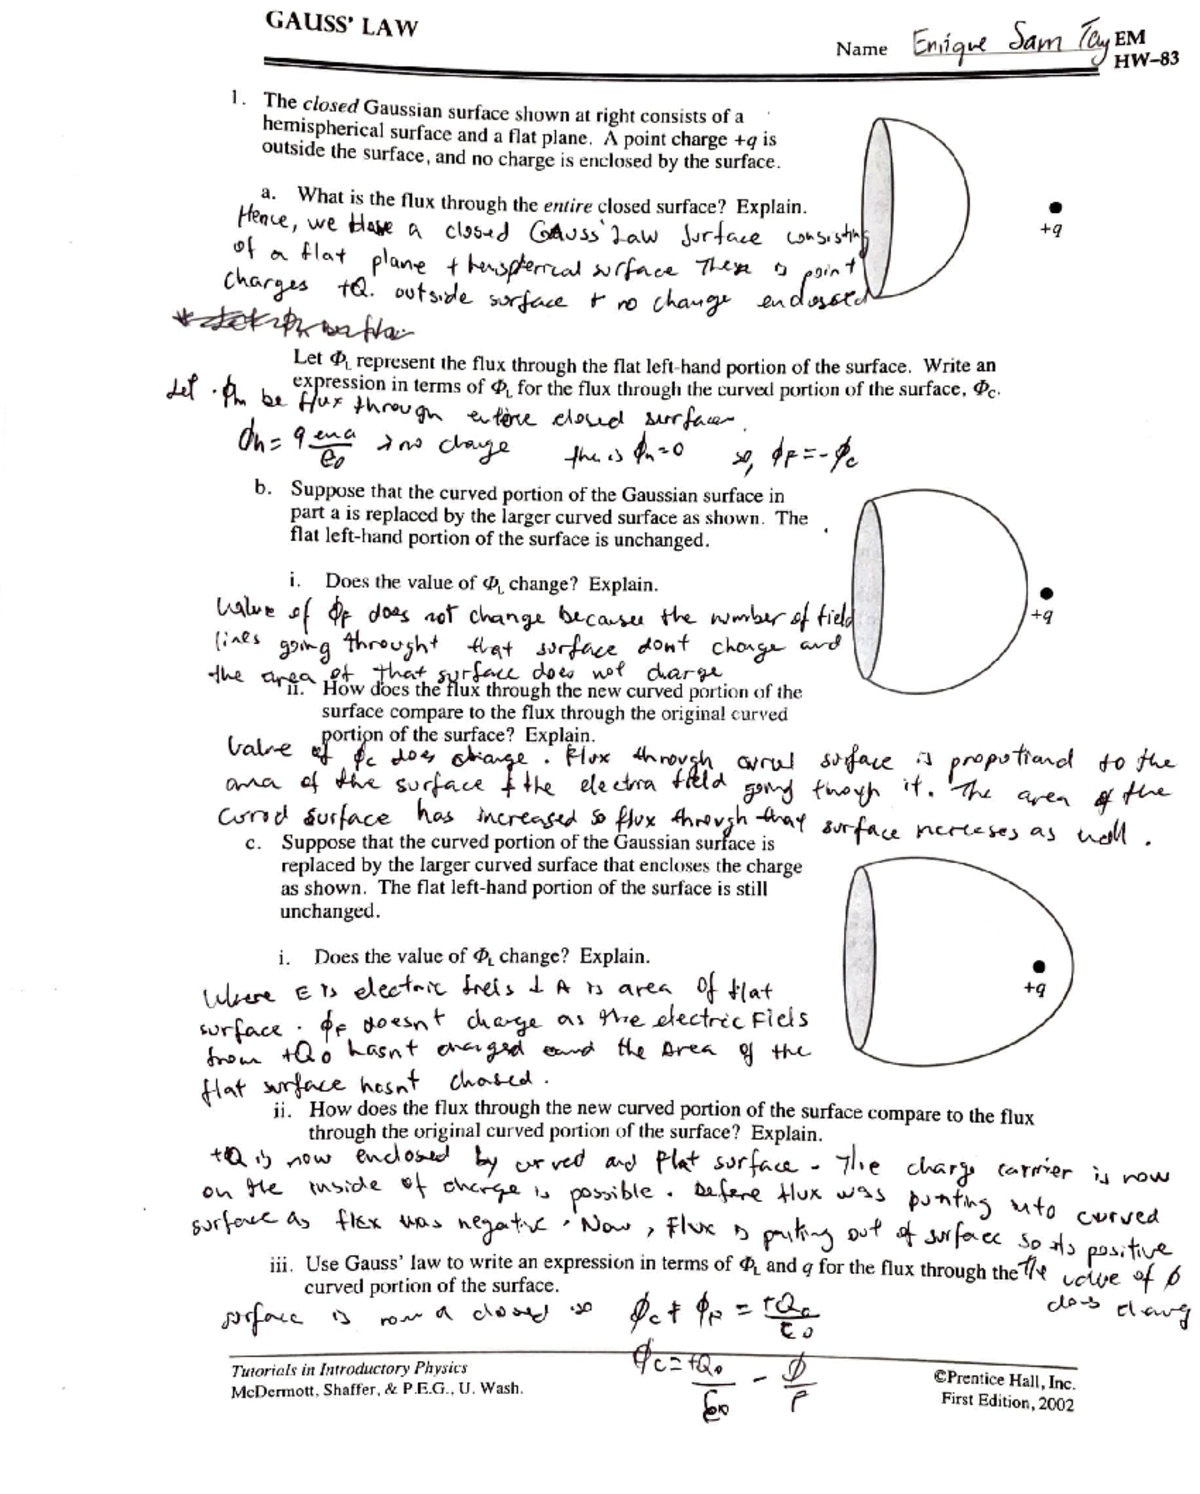 GAUSS' LAW
Name Enrique Sam Tay EM
HW–83
1. The closed Gaussian surface shown at right consists of a
hemispherical surface and a flat plane. A point charge +q is
outside the surface, and no charge is enclosed by the surface.
a. What is the flux through the entire closed surface? Explain.
Hence, we have a closed Gauss' Law Surface consisting
of a flat plane + surface There is point
charges +Q. outside surface + no change
+q
Let ΦL represent the flux through the flat left-hand portion of the surface. Write an
expression in terms of ΦL for the flux through the curved portion of the surface, ΦC.
Let be flux through entire closed surface.
no charge so, ϕF = -ϕc
b. Suppose that the curved portion of the Gaussian surface in
part a is replaced by the larger curved surface as shown. The
flat left-hand portion of the surface is unchanged.
i. Does the value of ΦL change? Explain.
Value of ϕF does not change because the number of field
lines going throught that surface dont change and
the area of that surface does not change
+q
ii. How does the flux through the new curved portion of the
surface compare to the flux through the original curved
portion of the surface? Explain.
Value of ϕc does change. Flux through surface is to the
area of the surface & the field going though it. The area of the
surface has increased so flux through that surface as well.
c. Suppose that the curved portion of the Gaussian surface is
replaced by the larger curved surface that encloses the charge
as shown. The flat left-hand portion of the surface is still
unchanged.
i. Does the value of ΦL change? Explain.
Where E is electric & A is area of flat
surface. ϕF doesnt change as the electric Fiels
from +Qo hasnt and the Area of the
flat surface hasnt
+q
ii. How does the flux through the new curved portion of the surface compare to the flux
through the original curved portion of the surface? Explain.
+Q is now enclosed by curved and flat surface. The charge carrier is now
on the inside of is possible. Before flux was into curved
surface as flux was negative. Now, Flux is out of surface so its positive
iii. Use Gauss' law to write an expression in terms of ΦL and q for the flux through the The value of ϕ
curved portion of the surface. does
surface is now a closed so ϕc + ϕF = +Qo/ε0
ϕc = +Qo/ε0 - ϕ/F
Tutorials in Introductory Physics
McDermott, Shaffer, & P.E.G., U. Wash.
©Prentice Hall, Inc.
First Edition, 2002